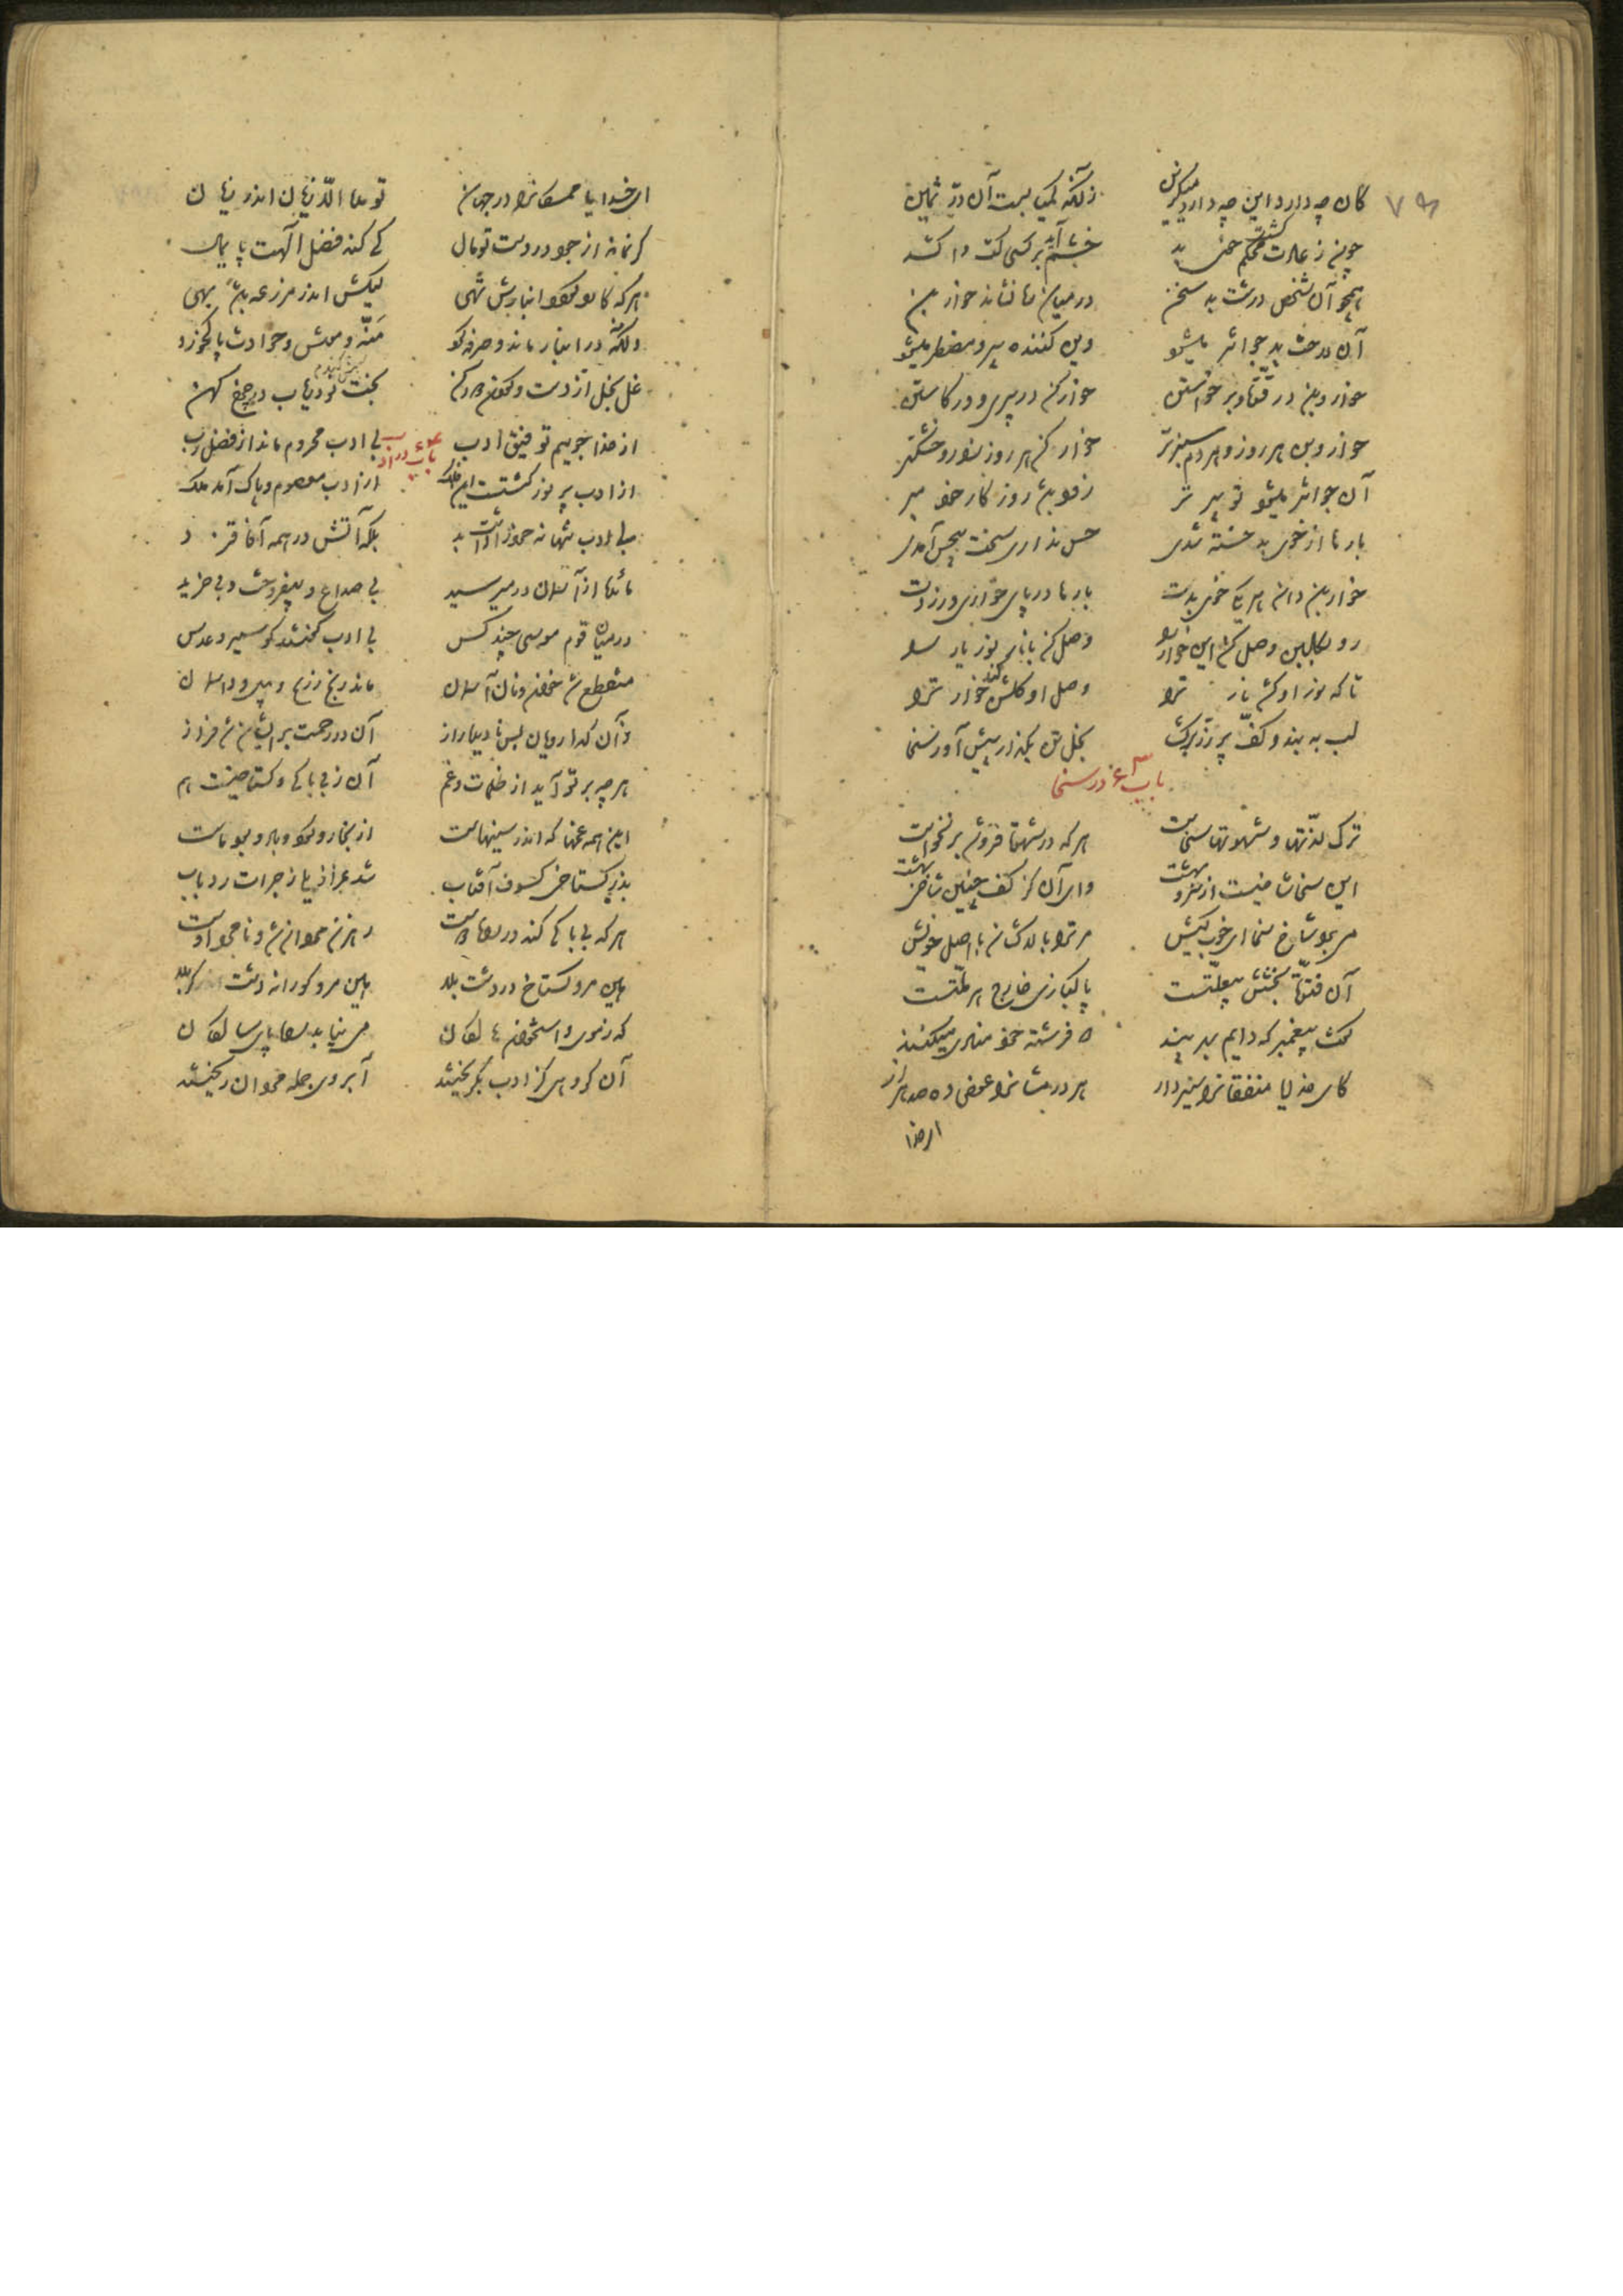 ۷۹
کان چه دارد این چه دارد میکزین زانکه کمیاب است آن درّ ثمین
چون ز عادت گشت محکم خوی بد خشم آید بر کسی کت واکشد
همچو آن شخص درشت بد سخن در میان ره نشاند خاربن
آن درخت بد جوانتر میشود وین کننده پیر و مضطر میشود
خاربن در قوّت و برخاستن خارکن در پیری و در کاستن
خاربن هر روز و هر دم سبزتر خارکن هر روز زار و خشکتر
آن جوانتر میشود تو پیرتر زود باش روزگار خود مبر
بارها از خوی بد خسته شدی حس نداری سخت بیحس آمدی
خاربن دان هر یکی خوی بدت بارها در پای خار آخر زدت
رو بگلبن وصل کن این خار را وصل کن با نار نور یار را
تا که نور او کشد نار ترا وصل او گلشن کند خار ترا
لب به بند و کف پر زر برگشا بخل تن بگذار پیش آور سخا
باب در سخا
ترک لذّتها و شهوتها سخاست هر که در شهوت فرو شد برنخاست
این سخا شاخیست از سرو بهشت وای آن کز کف چنین شاخی بهشت
می برد شاخ سخا ای خوب کیش مر ترا بالا کشان با اصل خویش
آن فتوّت بخشش بیعلّتست پاکبازی خارج هر ملّتست
گفت پیغمبر که دایم بهر پند دو فرشته خوش منادی میکنند
کای خدایا منفقانرا سیر دار هر درمشانرا عوض ده صد هزار
ای خدا
ای خدایا ممسکانرا در جهان تو مده الّا زیان اندر زیان
گر نماند از جود در دست تو مال کی کند فضل الهت پایمال
هر که کارد گردد انبارش تهی لیکش اندر مزرعه باشد بهی
وانکه در انبار ماند و صرفه کرد شپش و موش و حوادث پاک خورد
غل بخل از دست و گردن دور کن بخت نو دریاب در چرخ کهن
باب در ادب
از خدا جوییم توفیق ادب بی ادب محروم ماند از فضل رب
از ادب پر نور گشتست این فلک از ادب معصوم و پاک آمد ملک
بی ادب تنها نه خود را داشت بد بلکه آتش در همه آفاق زد
مائده از آسمان در میرسید بی صداع و بیفروخت و بی خرید
در میان قوم موسی چند کس بی ادب گفتند کو سیر و عدس
منقطع شد خوان و نان آسمان ماند رنج زرع و بیل و داسمان
زآن گدا رویان نادیده ز آز آن در رحمت بر ایشان شد فراز
هر چه بر تو آید از ظلمات و غم آن ز بی باکی و گستاخیست هم
این همه غمها که اندر سینهاست از بخار و گرد باد و بود ماست
بد ز گستاخی کسوف آفتاب شد عزازیلی ز جرات رد باب
هر که بی باکی کند در راه دوست رهزن مردان شد و نامرد اوست
هین مرو گستاخ در دشت بلا هین مرو کورانه در کربلا
که ز موی و استخوان هالکان می نیابد راه پای سالکان
آن گروهی کز ادب بگریختند آبروی جمله مردان ریختند